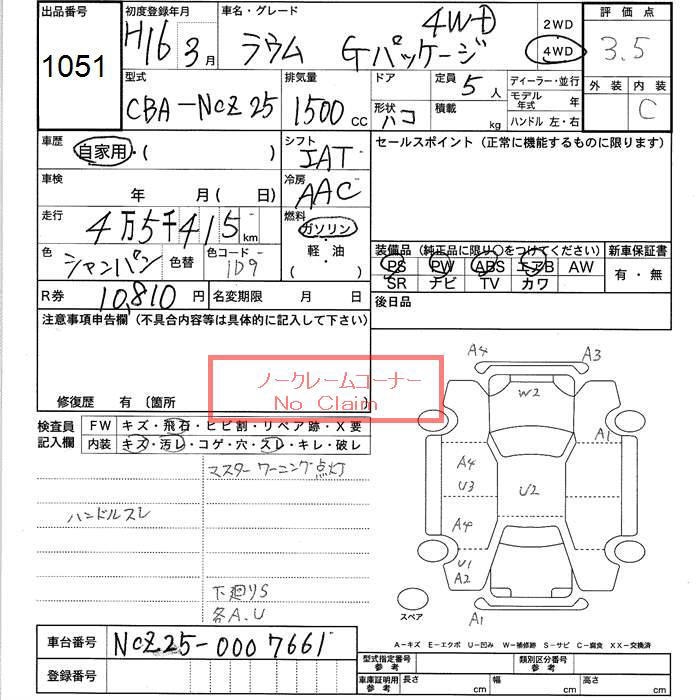 出品番号
1051
初度登録年月
H16 3月
車名・グレード
ラウム Gパッケージ 4WD
2WD
4WD
評価点
3.5
型式
CBA-NCZ25
排気量
1500 CC
ドア
形状 ハコ
定員 5人
積載 kg
ディーラー・並行
モデル年式 年
ハンドル 左・右
外装
内装
C
車歴
自家用・( )
シフト
IAT
セールスポイント (正常に機能するものに限ります)
車検
年 月( 日)
冷房
AAC
走行
4万5千415km
燃料
ガソリン
軽・油
( )
色
シャンパン
色替
色コード
1D9
装備品 (純正品に限り○をつけてください)
新車保証書
PS PW ABS エアB AW
SR ナビ TV カワ
有・無
R券
10,810円
名変期限 月 日
後日品
注意事項申告欄 (不具合内容等は具体的に記入して下さい)
ノークレームコーナー
No Claim
修復歴 有 〔箇所
検査員記入欄
FW キズ・飛石・ヒビ割・リペア跡・X要
内装 キズ・汚レ・コゲ・穴・スレ・キレ・破レ
マスターワーニング点灯
ハンドルスレ
下廻りS
各A.U
A4
A3
W2
A1
A4
U3
U2
A4
U1
A2
A1
スペア
A-キズ E-エクボ U-凹み W-補修跡 S-サビ C-腐食 XX-交換済
車台番号
NCZ25-0007661
登録番号
型式指定番号 参考
類別区分番号 参考
車庫証明用 参考
長さ cm
幅 cm
高さ cm